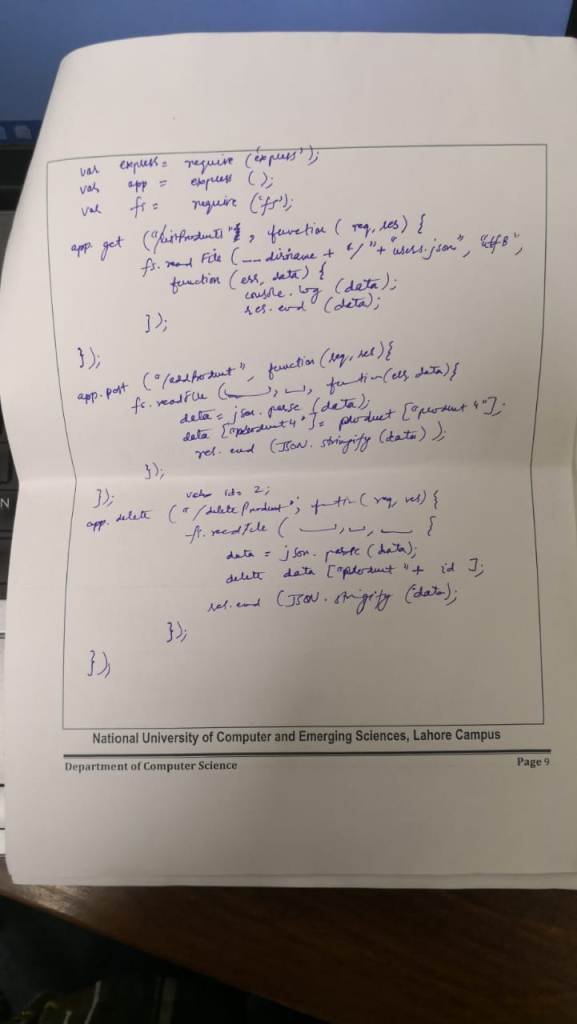 var express = require ('express');
var app = express ();
var fs = require ('fs');
app. get ("/listProducts", function ( req, res) {
fs. read File (__dirname + "/" + "users.json", "utf8",
function (err, data) {
console. log (data);
res. end (data);
});
});
app. post ("/addProduct", function (req, res) {
fs. readFile (__, __, function (err, data) {
data = json. parse (data);
data ["product4"] = product ["product 4"];
res. end (JSON. stringify (data) );
});
});
var id = 2;
app. delete ("/deleteProduct", function ( req, res) {
fs. readfile ( __, __, __ {
data = json. parse (data);
delete data ["product" + id ];
res. end (JSON. stringify (data);
});
});
National University of Computer and Emerging Sciences, Lahore Campus
Department of Computer Science
Page 9